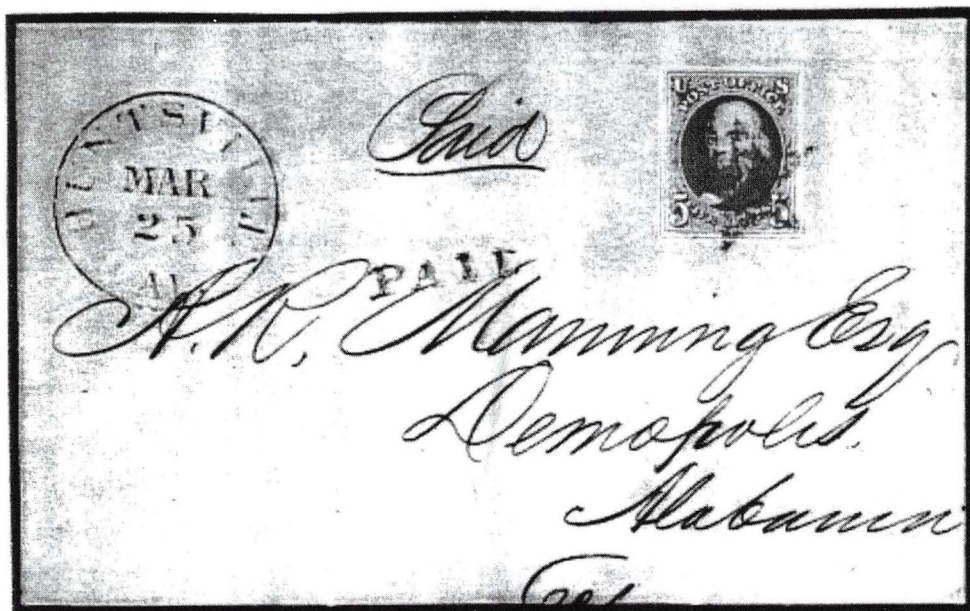 HUNTSVILLE
MAR
25
Al.
Paid
U S
POST OFFICE
5 5
PAID
A. R. Manning Esq
Demopolis.
Alabama